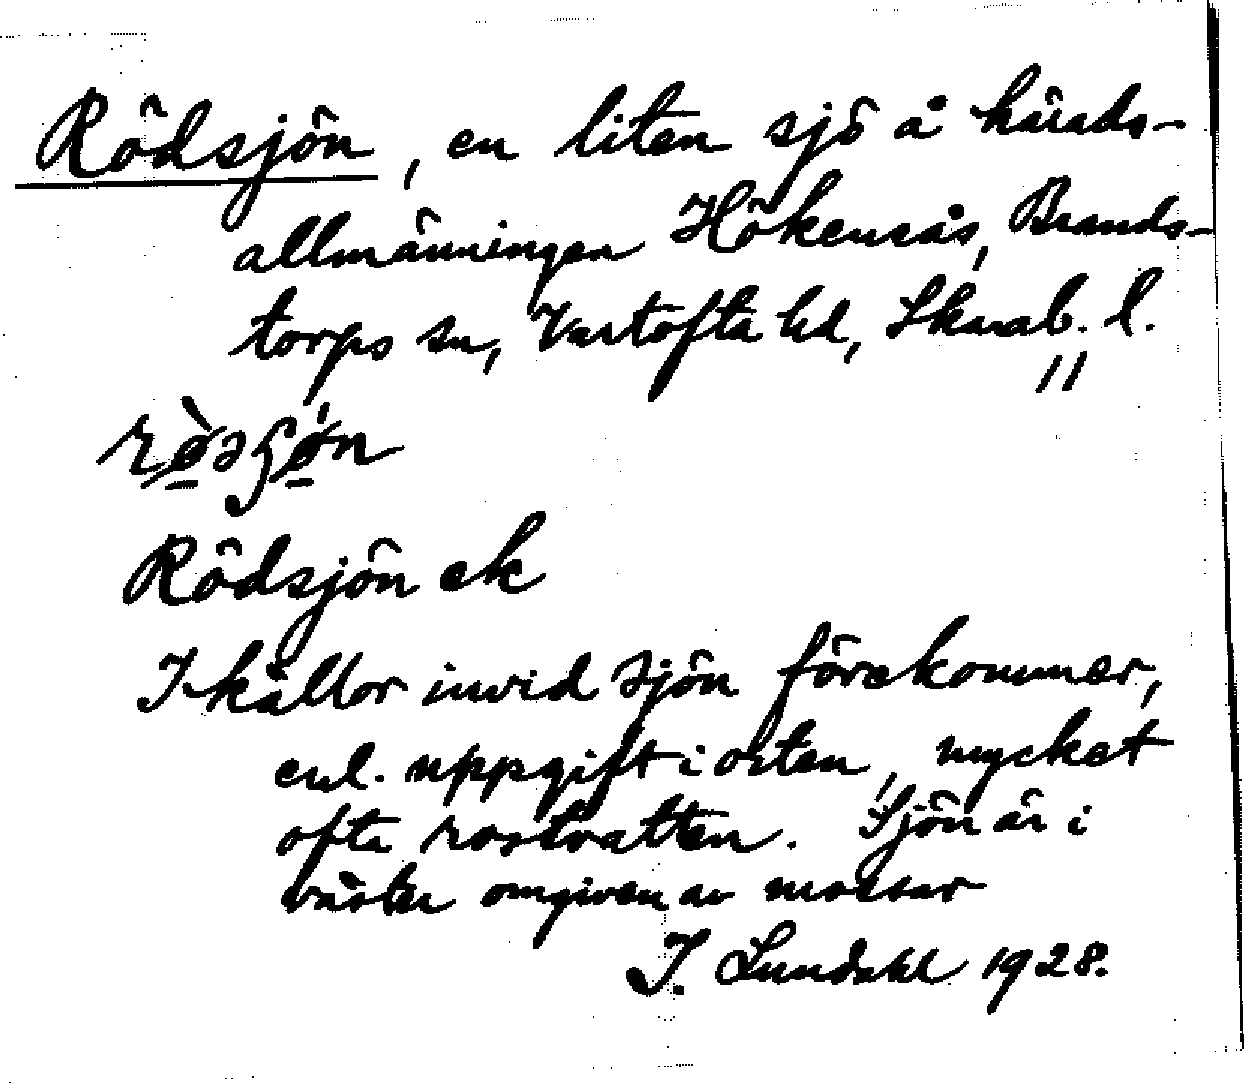 Rödsjön, en liten sjö å härads-
allmänningen Hökensås, Brands-
torps sn, Vartofta hd, Skarab. l.
Rödsjön ek
I källor invid sjön förekommer,
enl. uppgift i orten, mycket
ofta rostvatten. Sjön är i
väster omgiven av mossar
I. Lundahl 1928.